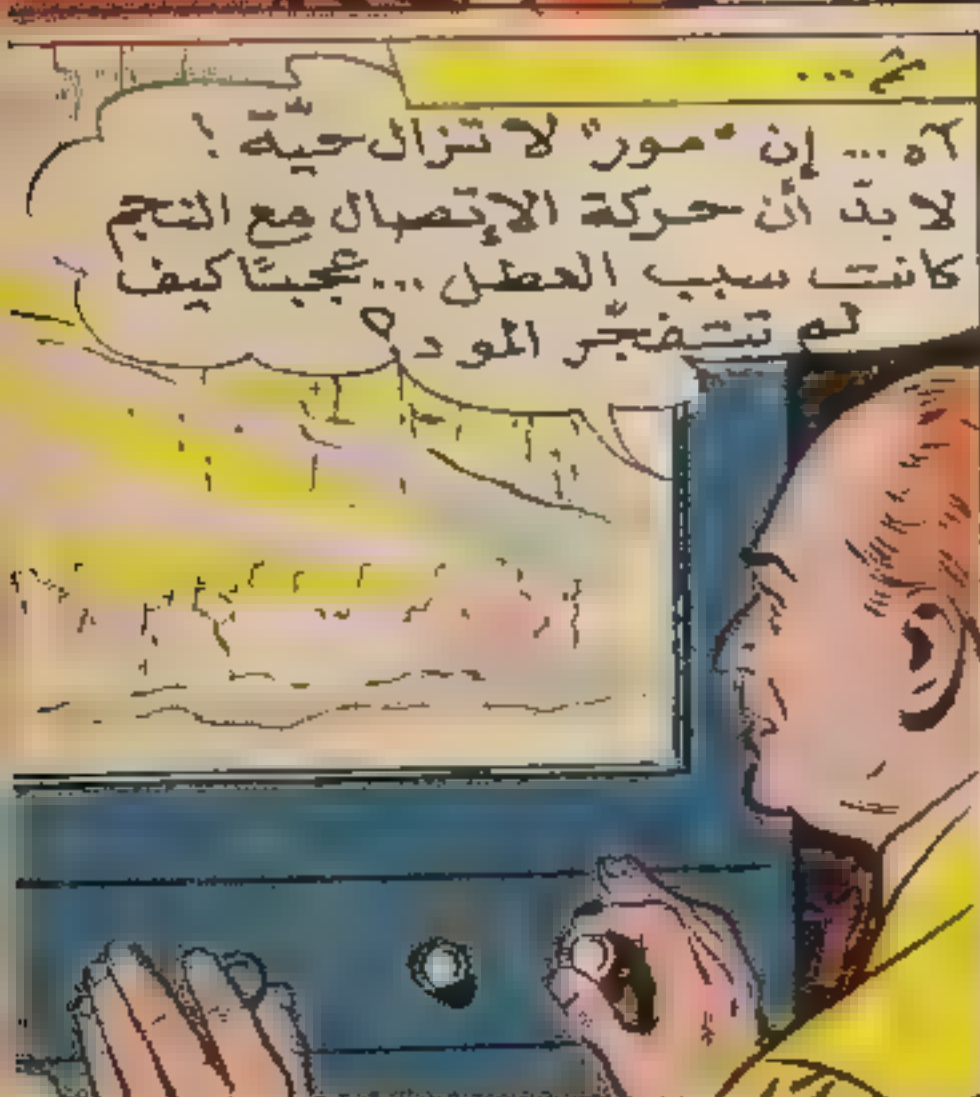 ثمّ ...
آه ... إن "مور" لا تزال حيّة !
لا بدّ أن حركة الإتصال مع النجم
كانت سبب العطل ... عجبًا كيف
لم تتفجّر المورد